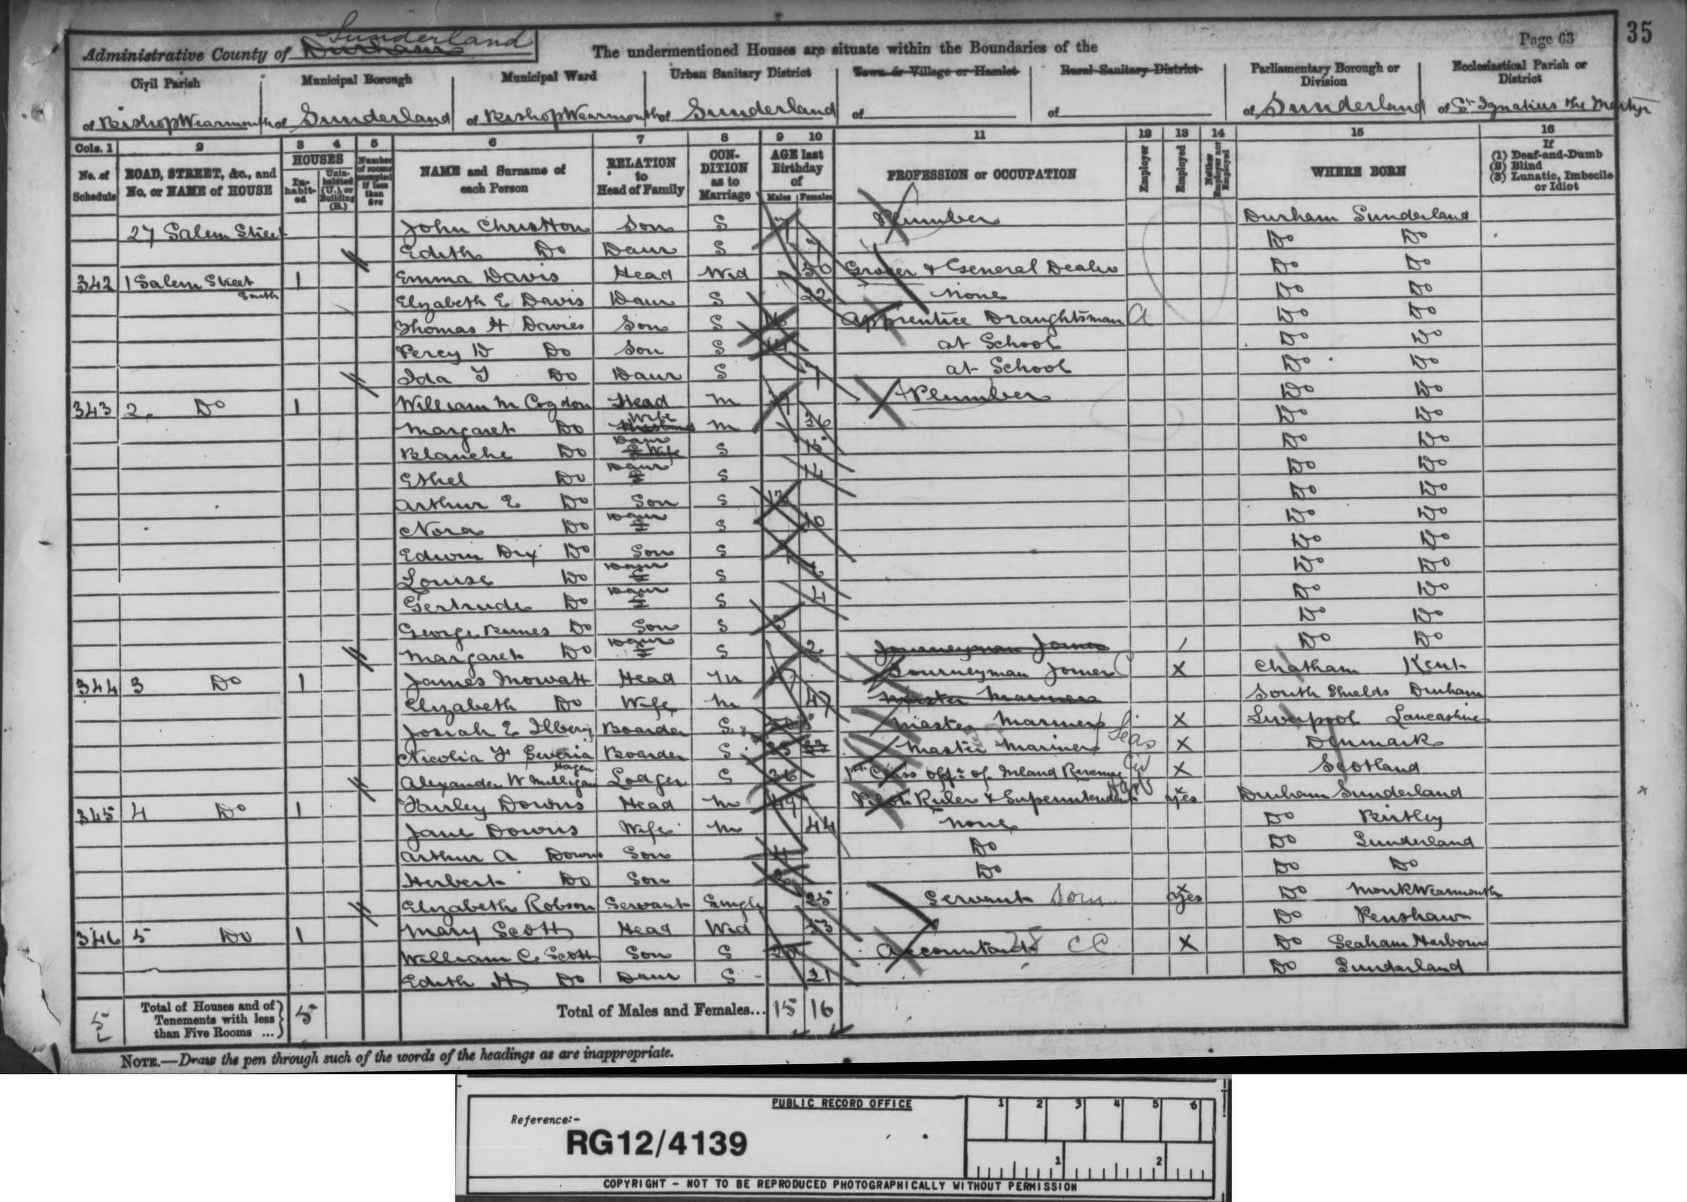 Page 63
35
Administrative County of Durham Sunderland
The undermentioned Houses are situate within the Boundaries of the
Civil Parish
of BishopWearmouth
Municipal Borough
of Sunderland
Municipal Ward
of BishopWearmouth
Urban Sanitary District
of Sunderland
Town or Village or Hamlet
of
Rural Sanitary District
of
Parliamentary Borough or Division
of Sunderland
Ecclesiastical Parish or District
of St Ignatius the Martyr
Cols. 1 2 3 4 5 6 7 8 9 10 11 12 13 14 15 16
No. of Schedule
ROAD, STREET, &c., and No. or NAME of HOUSE
HOUSES
In-habit-ed
Unin-habited (U.), or Building (B.)
Number of rooms occupied if less than five
NAME and Surname of each Person
RELATION to Head of Family
CON-DITION as to Marriage
AGE last Birthday of
Males Females
PROFESSION or OCCUPATION
Employer
Employed
Neither Employer nor Employed
WHERE BORN
If
(1) Deaf-and-Dumb
(2) Blind
(3) Lunatic, Imbecile or Idiot
27 Salem Street John Son S Plumber Durham Sunderland
Edith Do Daur S 7 Do Do
342 1 Salem Street South 1 Emma Davis Head Wid 50 Grocer & General Dealer Do Do
Elizabeth E Davis Daur S 22 none Do Do
Thomas H Davies Son S Apprentice Draughtsman Do Do
Percy D Do Son S at School Do Do
Ida Do Daur S 7 at School Do Do
343 2 Do 1 William M Cogdon Head M Plumber Do Do
Margaret Do Wife M 36 Do Do
Blanche Do Daur S Do Do
Ethel Do Daur S 14 Do Do
Arthur E Do Son S Do Do
Nora Do Daur S 10 Do Do
Edwin Do Son S Do Do
Louise Do Daur S Do Do
Gertrude Do Daur S 4 Do Do
George Do Son S 3 Do Do
Margaret Do Daur S 2 Journeyman Joiner Do Do
344 3 Do 1 James Mowatt Head M Journeyman Joiner X Chatham Kent
Elizabeth Do Wife M 47 Master Mariner South Shields Durham
Josiah E Boarder S Master Mariner X Liverpool Lancashire
Boarder S Master Mariner Seas X Denmark
Alexander W Milligan Lodger S 26 1st Class off: of Inland Revenue X Scotland
345 4 Do 1 Downs Head M 49 Ruler & Superintendent yes Durham Sunderland
Jane Downs Wife M 44 none Do Birtley
Arthur A Downs Son Do Do Sunderland
Herbert Do Son Do Do Do
Elizabeth Robson Servant Single 25 Servant Dom yes Do MonkWearmouth
346 5 Do 1 Mary Scott Head Wid 53 Do Penshaw
William C Scott Son S Accountants CC X Do Seaham Harbour
Edith H Do Daur S 21 Do Sunderland
5 Total of Houses and of Tenements with less than Five Rooms ... 5 Total of Males and Females... 15 16
NOTE.—Draw the pen through such of the words of the headings as are inappropriate.
PUBLIC RECORD OFFICE
1 2 3 4 5 6
Reference:-
RG12/4139
1 2
COPYRIGHT - NOT TO BE REPRODUCED PHOTOGRAPHICALLY WITHOUT PERMISSION